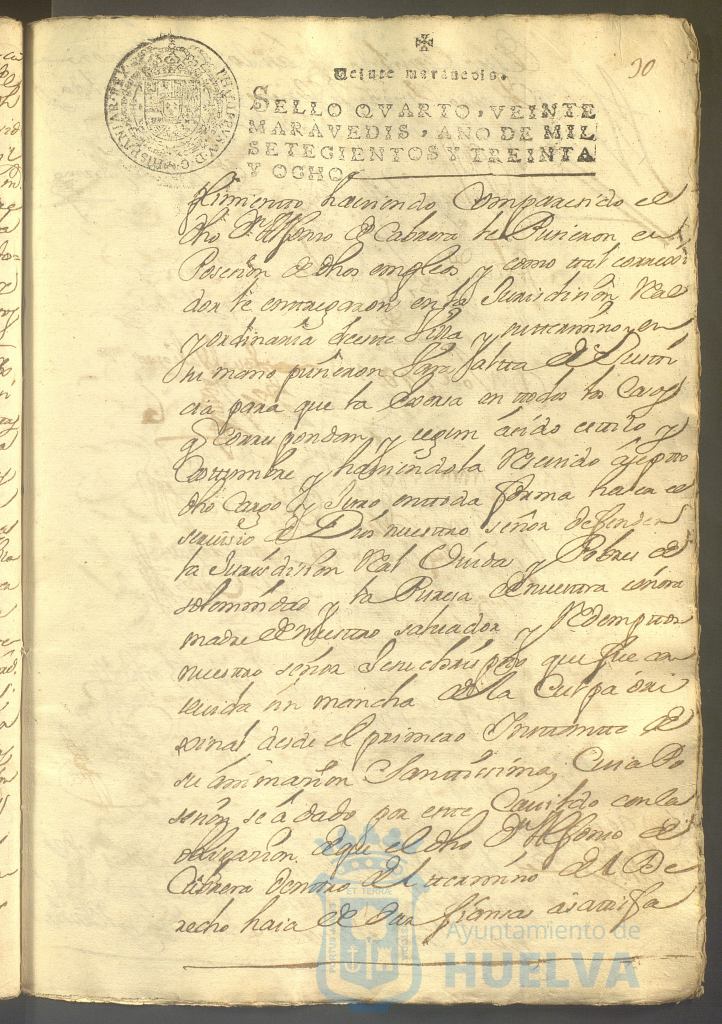 30
Veinte maravedis.
SELLO QVARTO, VEINTE
MARAVEDIS, AÑO DE MIL
SETECIENTOS Y TREINTA
Y OCHO.
PHILIPPUS V D G HISPANIAR REX
plimiento haviendo Comparecido el
dho Dn Alfonso de Cabrera le Pusieron en
Posesion de dhos empleos y como tal correxi
dor le entregaron en la Jurisdision Real
y ordinaria de esta Villa y su termino y en
su mano pusieron Vara alta de Justi
cia para que la exersa en todos los Casos
q Correspondan y segun á sido estilo y
Costumbre y haviendola Resevido aseptó
dho Cargo y Juro en toda forma haser el
servisio de Dios nuestro señor defender
la Jurisdision Real Viuda y Pobres de
solemnidad y la Puresa de nuestra señora
madre de nuestro salvador y Redemptor
nuestro señor Jesuchristo que fue con
sevida sin mancha de la Culpa ori
xinal desde el primero Instante de
su animasion Santissima, Cuia Po
sesion se á dado por este Cavildo con la
obligasion de que el dho Dn Alfonso de
Cabrera dentro del termino del De
recho haia de dar fiansas á satisfa
Ayuntamiento de
HUELVA